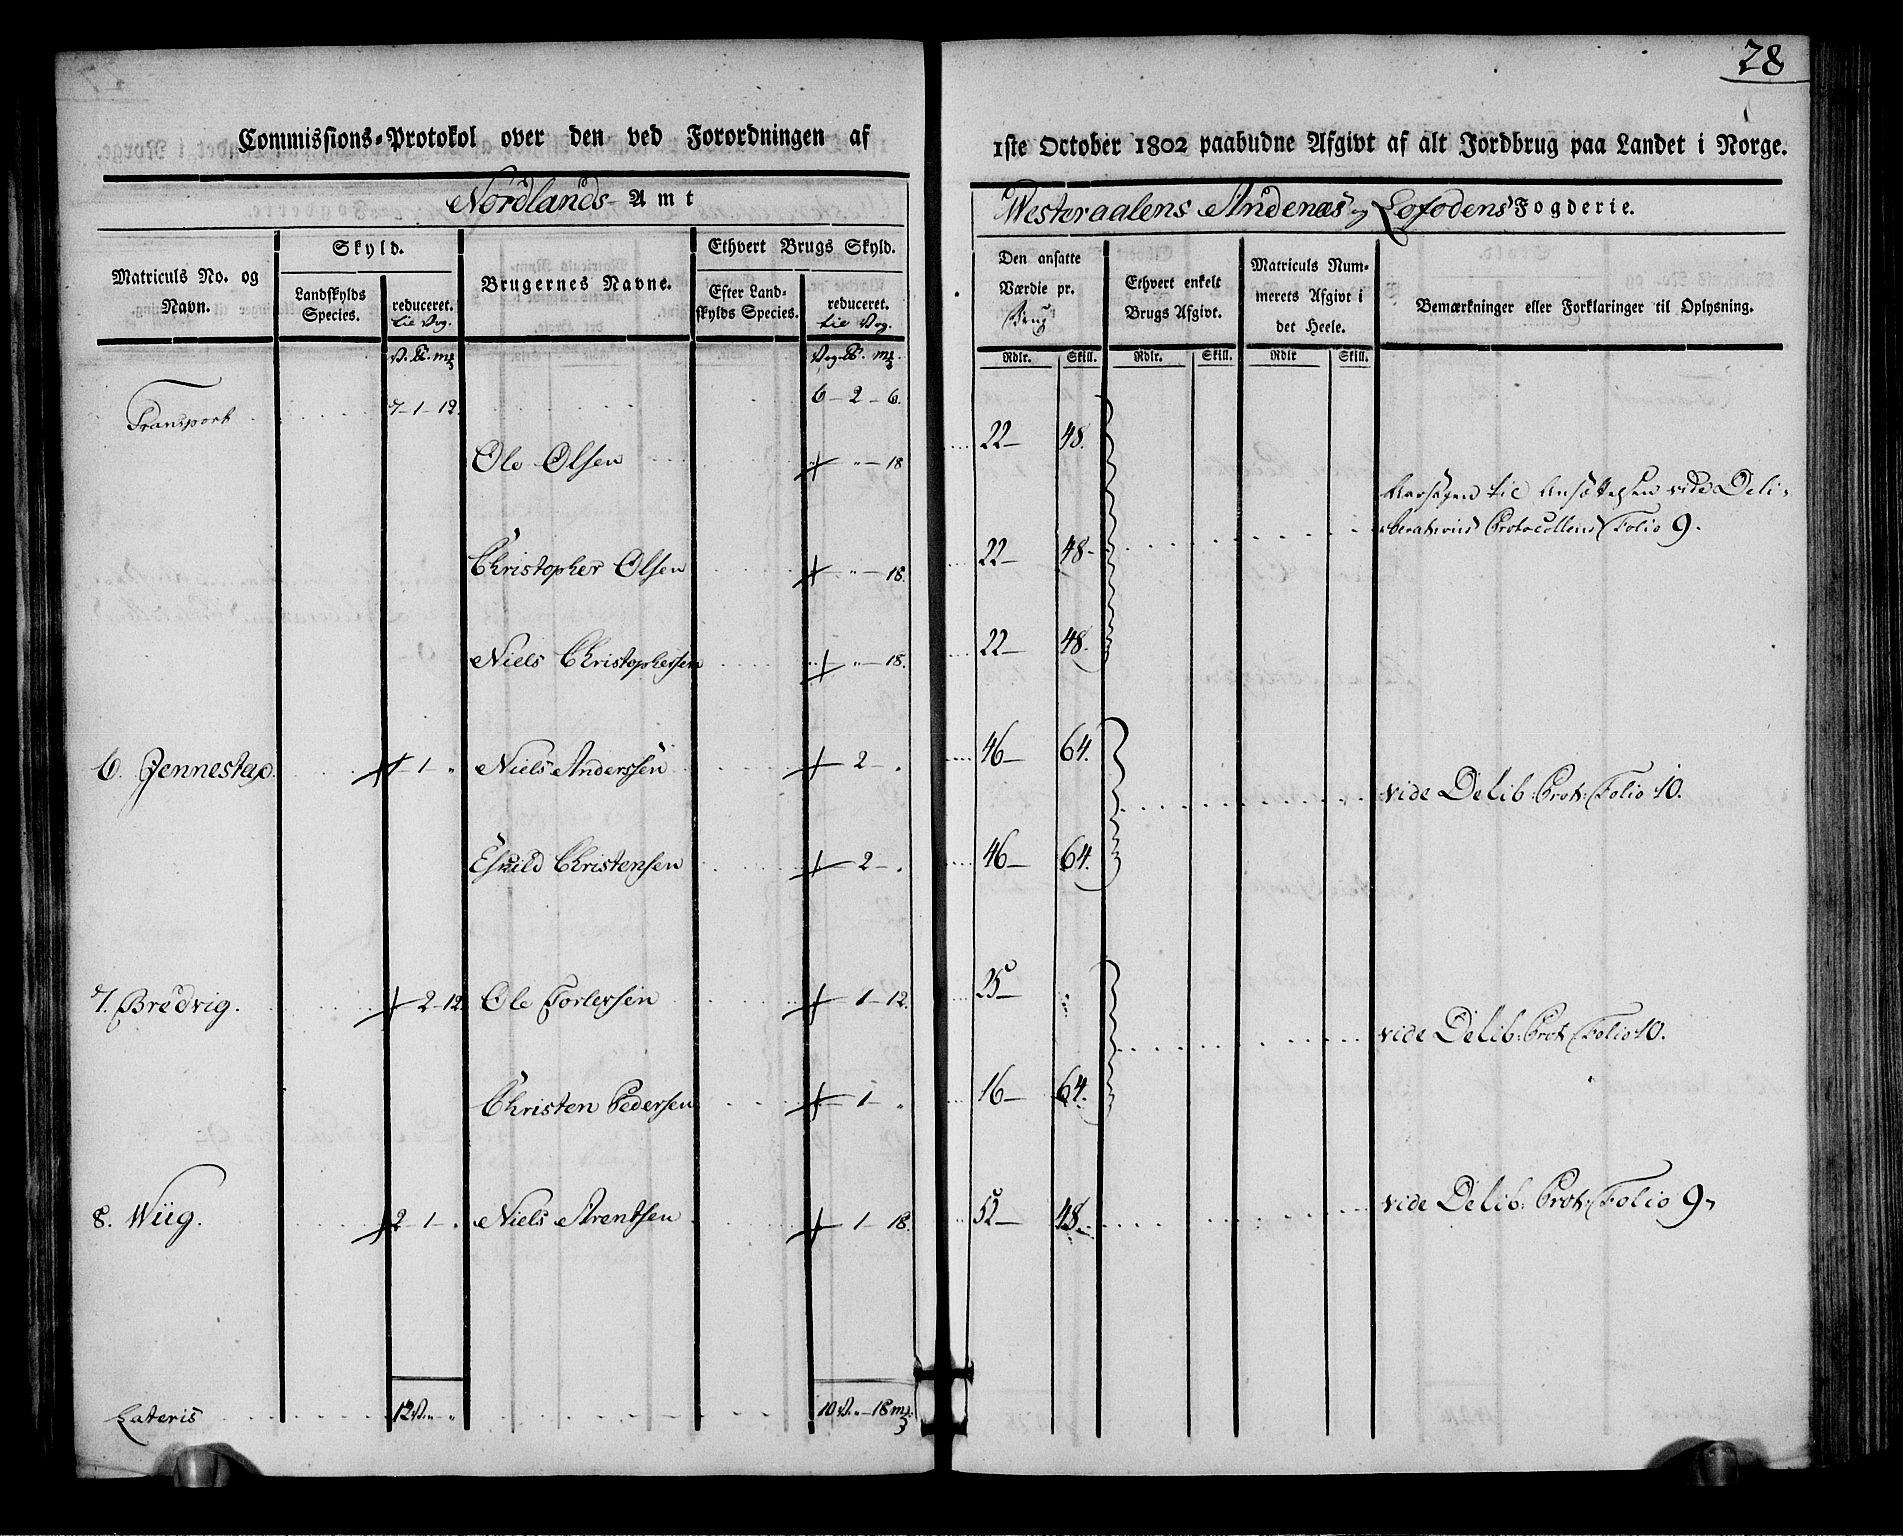 28
Commissions-Protokol over den ved Forordningen af
1ste October 1802 paabudne Afgivt af alt Jordbrug paa Landet i Norge.
Nordlands Amt
Westeraalens Andenæs og Lofodens Fogderie.
Matriculs No. og Navn.
Skyld.
Landskylds Species.
reduceret. til Vog.
Brugernes Navne.
Ethvert Brugs Skyld.
Efter Landskylds Species.
reduceret. til Vog.
Den ansatte Værdie pr. Brug
Ethvert enkelt Brugs Afgivt.
Matriculs Nummerets Afgivt i det Heele.
Bemærkninger eller Forklaringer til Oplysning.
Rdlr. Skill. Rdlr. Skill. Rdlr Skill.
Transport 7-1-12. 6-2-6.
Ole Olsen " - 18 22- 48.
Aarsagen til Ansættelsen vide Deli-
berations Protocollens Folio 9.
Christopher Olsen " - 18. 22- 48-
Niels Christophersen " - 18. 22- 48.
6. Jennestap 1-1-" Niels Anderssen 2-" 46- 64. vide Delib: Prot: Folio 10.
Eskild Christensen 2-" 46- 64.
7. Bredvig. 2-12. Ole Torlersen 1-12. 25- " vide Delib: Prot: Folio 10.
Christen Pedersen 1-" 16- 64.
8. Wiig. 2-1-" Niels Arentsen 1-18. 52- 48. vide Delib: Prot: Folio 9.
Lateris 12V. " - " 10V. " - 18 mk